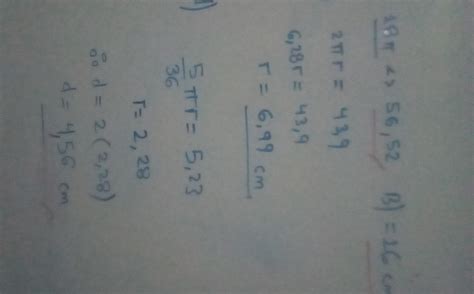 18π <> 56,52    B) = 26 cm
2πr = 43,9
6,28r = 43,9
r = 6,99 cm
5/36 πr = 5,23
r = 2,28
∴ d = 2(2,28)
d = 4,56 cm